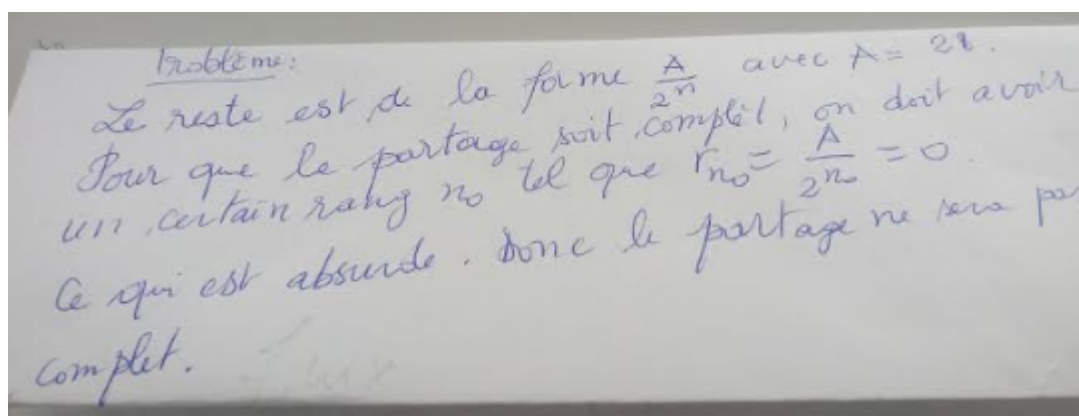 Problème:
Le reste est de la forme A/2^n avec A = 28.
Pour que le partage soit complêt, on doit avoir
un certain rang n₀ tel que r_n₀ = A/2^n₀ = 0.
Ce qui est absurde. Donc le partage ne sera pas
complet.